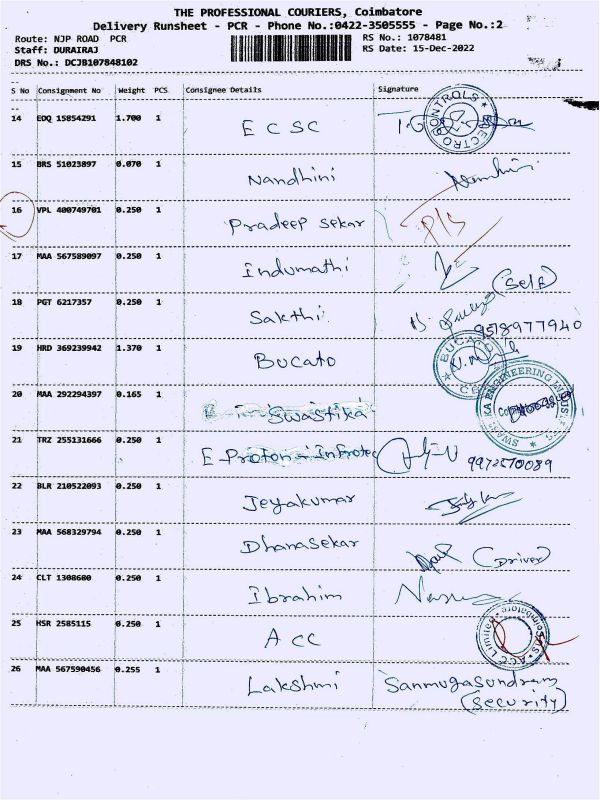 THE PROFESSIONAL COURIERS, Coimbatore
Delivery Runsheet - PCR - Phone No.:0422-3505555 - Page No.:2
Route: NJP ROAD PCR RS No.: 1078481
Staff: DURAIRAJ RS Date: 15-Dec-2022
DRS No.: DCJB107848102
S No Consignment No Weight PCS Consignee Details Signature
14 EDQ 15854291 1.700 1 E C S C
15 BRS 51023897 0.070 1 Nandhini
16 VPL 400749701 0.250 1 Pradeep Sekar P/S
17 MAA 567589097 0.250 1 Indumathi (Self)
18 PGT 6217357 0.250 1 Sakthi 9578977940
19 HRD 369239942 1.370 1 Bucato BUCATO
20 MAA 292294397 0.165 1 Swastika
21 TRZ 255131666 0.250 1 E Proton Infrotec 9972570089
22 BLR 210522093 0.250 1 Jeyakumar
23 MAA 568329794 0.250 1 Dhanasekar (Driver)
24 CLT 1308680 0.250 1 Ibrahim
25 HSR 2585115 0.250 1 A CC ACC Limited
26 MAA 567590456 0.255 1 Lakshmi Sanmugasundram
(Security)